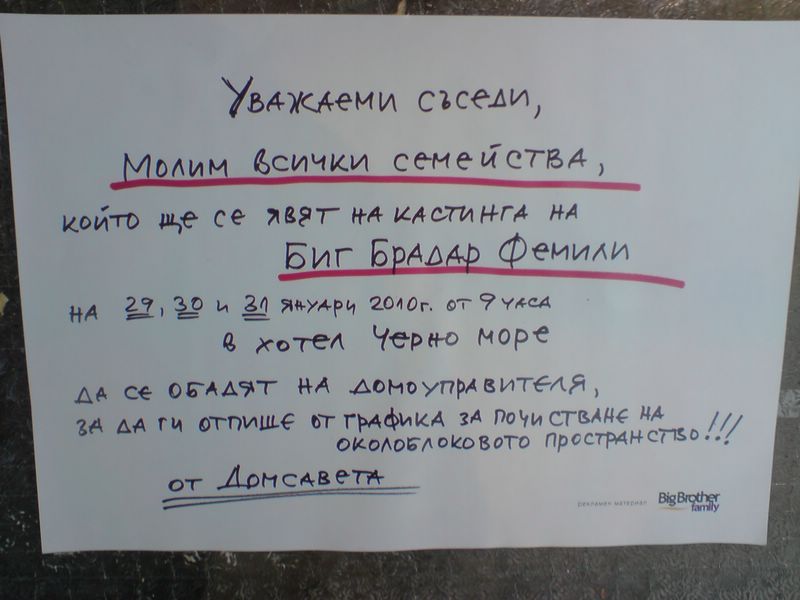 Уважаеми съседи,
Молим всички семейства,
който ще се явят на кастинга на
Биг Брадар Фемили
на 29, 30 и 31 януари 2010г. от 9 часа
в хотел Черно море
да се обадят на домоуправителя,
за да ги отпише от графика за почистване на
околоблоковото пространство!!!
от Домсавета
рекламен материал Big Brother
family